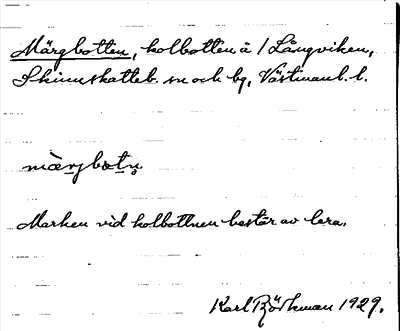 Märgbotten, kolbotten å / Långviken,
Skinnskatteb. sn och bg, Västmanl. l.
Marken vid kolbottnen består av lera.
Karl Björkman 1929.